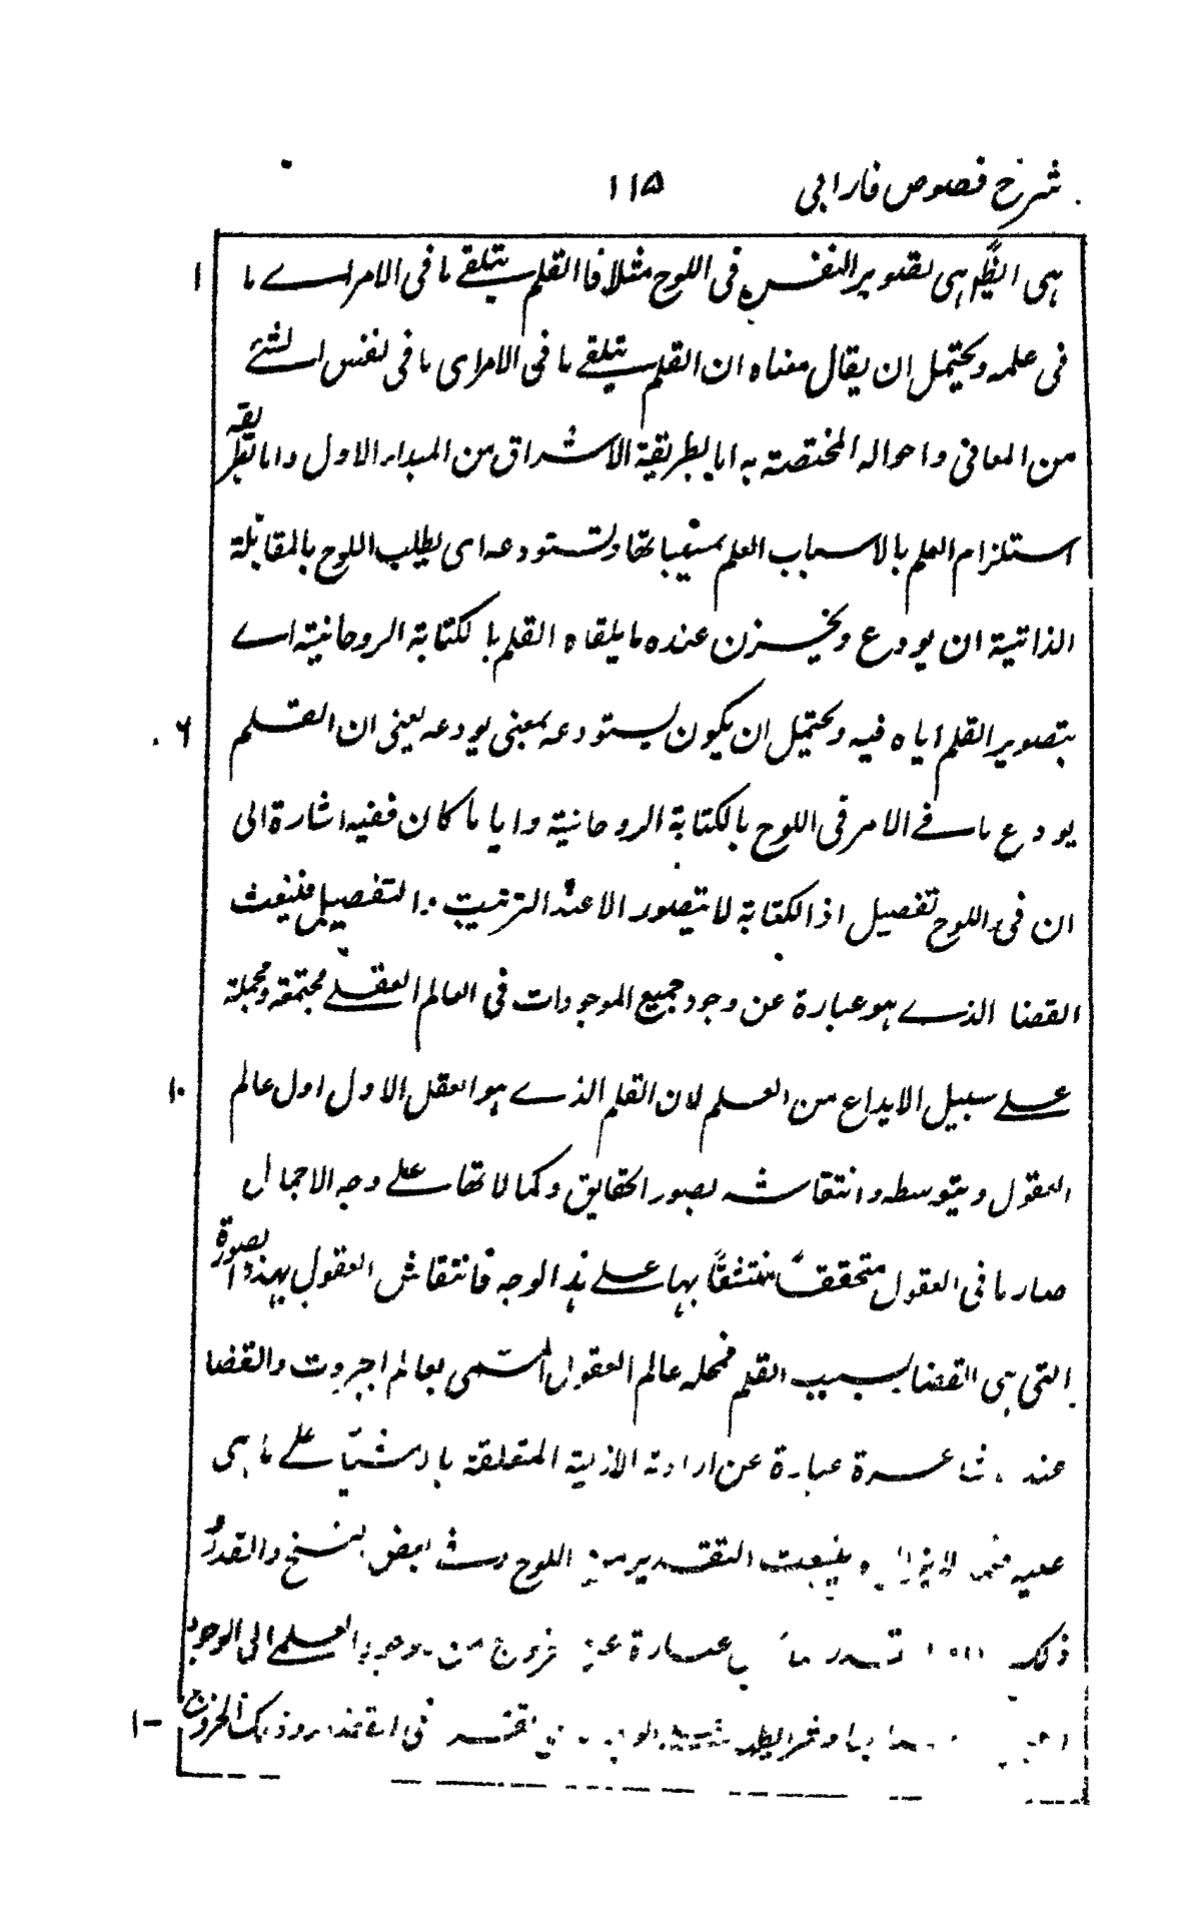 شرح فصوص فارابی ۱۱۵
ہی النظر ہی لتصویر النفس فی اللوح مثلا فالقلم یتلقے ما فی الامر اے ما ۱
فی علمہ ویحتمل ان یقال معناہ ان القلم یتلقے ما فی الامر ای ما فی نفس الشئے
من المعانی واحوالہ المختصتہ بہ اما بطریقۃ الاشراق من المبداء الاول واما بطریقہ
استلزام العلم بالاسباب العلم بمسبباتھا ویستودعہ ای یطلب اللوح بالمقابلۃ
الذاتیۃ ان یودع ویخزن عندہ ما یلقاہ القلم بالکتابۃ الروحانیۃ اے
بتصویر القلم ایاہ فیہ ویحتمل ان یکون یستودعہ بمعنی یودعہ یعنی ان القلم ۶
یودع ما فے الامر فی اللوح بالکتابۃ الروحانیۃ وایا ما کان ففیہ اشارۃ الی
ان فی اللوح تفصیل اذ الکتابۃ لا یتصور الا عند الترتیب والتفصیل فینبعث
القضا الذے ہو عبارۃ عن وجود جمیع الموجودات فی العالم العقلے مجتمعۃ ومجملۃ
علے سبیل الابداع من القلم لان القلم الذے ہو العقل الاول اول عالم ۱۰
العقول وبتوسطہ وانتقاشہ بصور الحقایق وکمالاتھا علے وجہ الاجمال
صار ما فی العقول متحققاً منتقشاً بہا علے ہذا الوجہ فانتقاش العقول بہذہ الصورۃ
التی ہی القضا بسبب القلم فمحلہ عالم العقول المسمی بعالم الجبروت والقضا
عند الاشاعرۃ عبارۃ عن ارادتہ الازلیۃ المتعلقۃ بالاشیاء علے ما ہی
علیہ فیما لا یزال وینبعث التقدیر من اللوح بعض النسخ والقدر
ذلک عبارۃ عن خروج من الوجود العلمے الی الوجود
فی وذلک الخروج